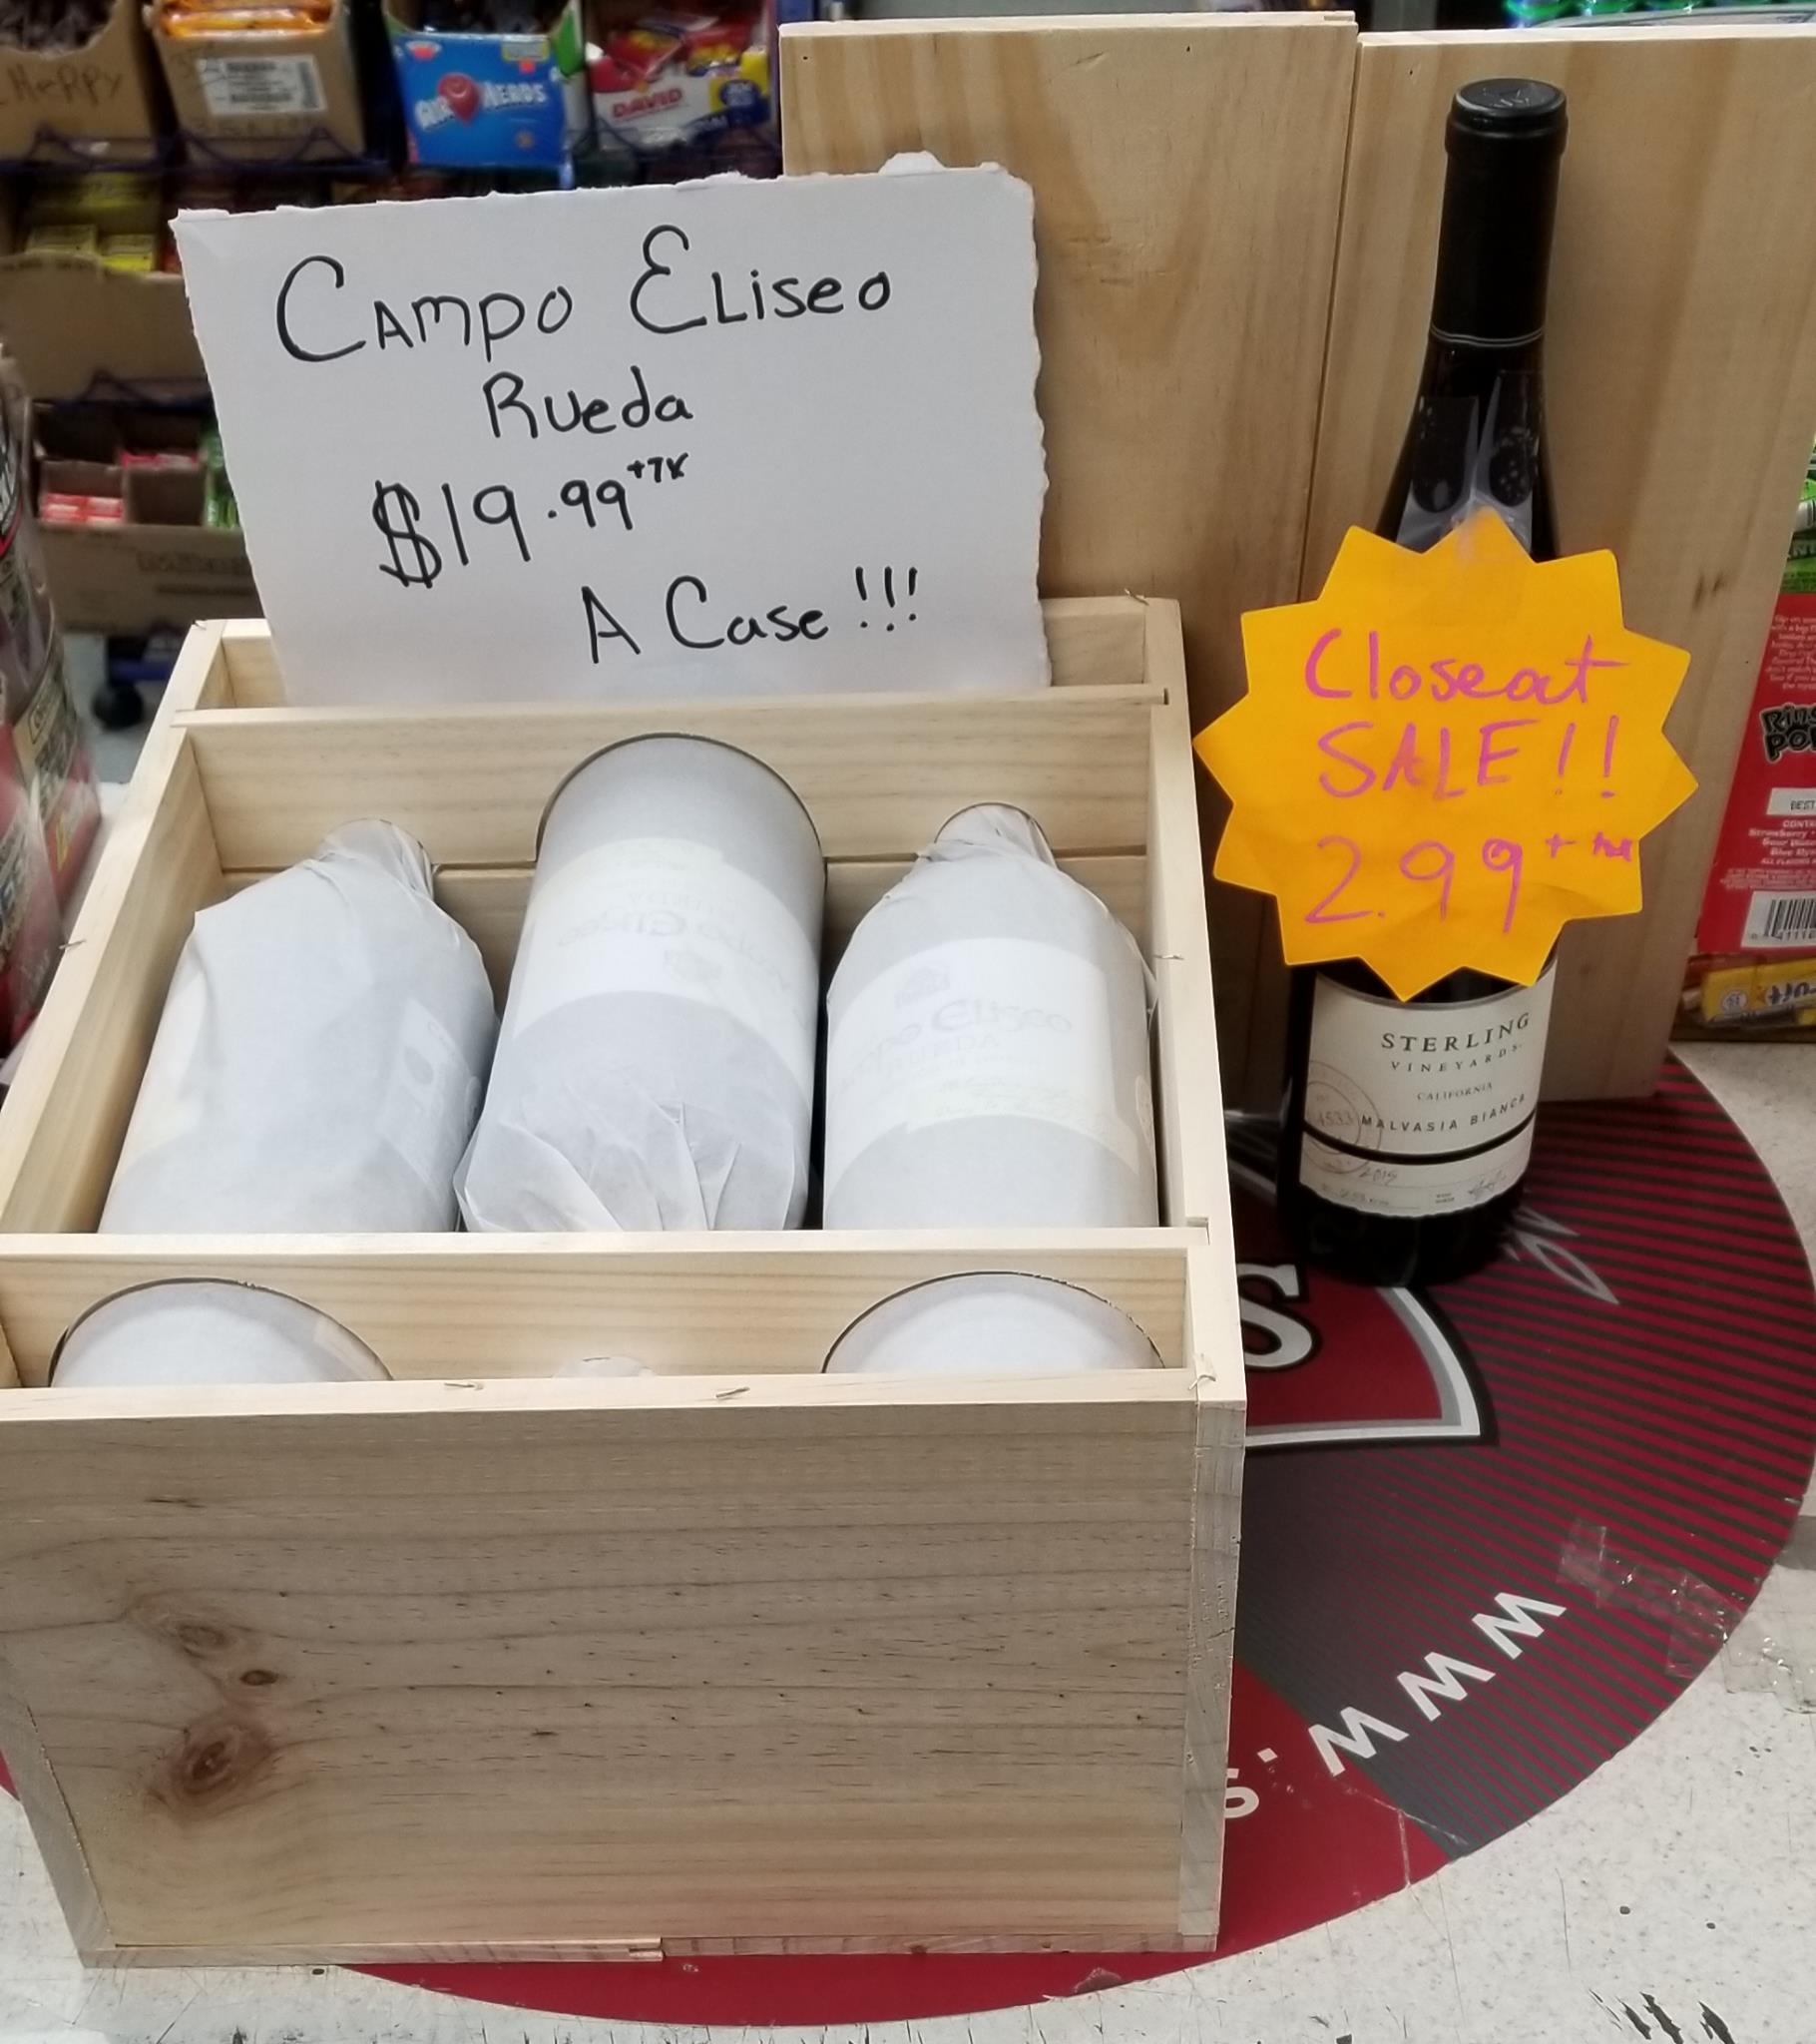 Heppy
AIRHEADS
DAVID
Campo Eliseo
Rueda
$19.99 +TX
A Case!!!
Closeout
SALE!!
2.99 + tax
STERLING
VINEYARDS
CALIFORNIA
MALVASIA BIANCA
2015
Campo Eliseo
RUEDA
BEST
WWW.S